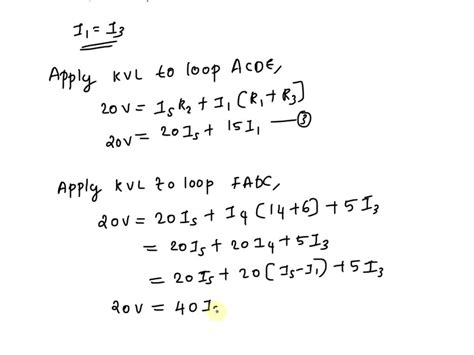 I₁ = I₃
Apply KVL to loop ACDE,
20V = I₅R₂ + I₁(R₁+R₃)
20V = 20I₅ + 15I₁ —③
Apply KVL to loop FADC,
20V = 20I₅ + I₄(14+6) + 5I₃
= 20I₅ + 20I₄ + 5I₃
= 20I₅ + 20(I₅-I₁) + 5I₃
20V = 40I